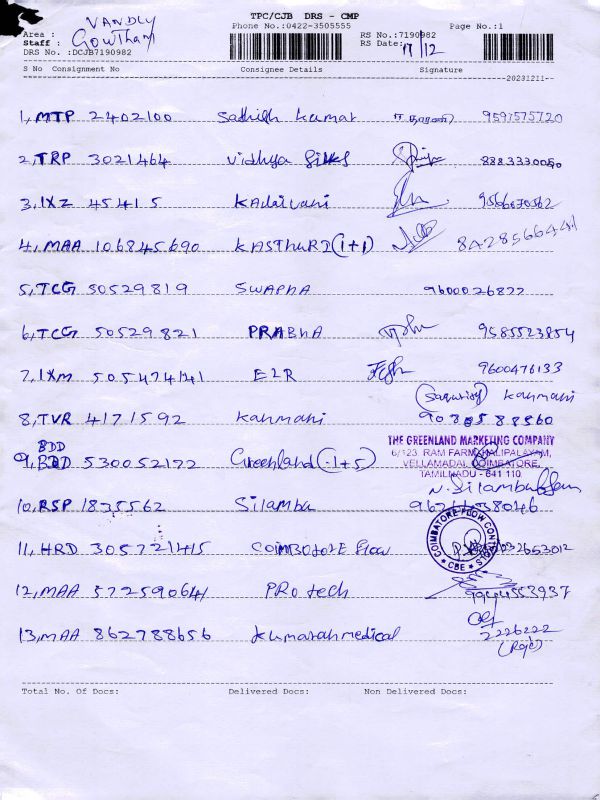 TPC/CJB DRS - CMP
Phone No.:0422-3505555 Page No.:1
Area : VANDLY
Staff : Gowtham
RS No.:7190982
RS Date: 17/12
DRS No. :DCJB7190982
S No Consignment No Consignee Details Signature
20231211
1, MTP 2402100 Sathish kumar 9597575720
2, TRP 3021464 Vidhya Silks 8883330050
3, IXZ 45415 kadaivani 9566670562
4, MAA 106845690 KASTHURI (1+1) 8428566441
5, TCG 50529819 SWAPNA 9600026822
6, TCG 50529821 PRABHA 9585523854
7, IXM 505474141 ELR 9600476133
8, TVR 4171592 kanmani kanmani
BDD
9, BDD 530052122 Greenland (1+5) THE GREENLAND MARKETING COMPANY
6/123, RAM FARM, HALIPALAYAM,
VELLAMADAI, COIMBATORE,
TAMILNADU - 641 110.
10, RSP 1835562 Silamba
11, HRD 305721415 COIMBOTORE Flow COIMBATORE FLOW CONTROL CBE
12, MAA 572590641 PRO tech 9944553937
13, MAA 862788656 Kumaran medical 2226222
(Raja)
Total No. Of Docs: Delivered Docs: Non Delivered Docs: